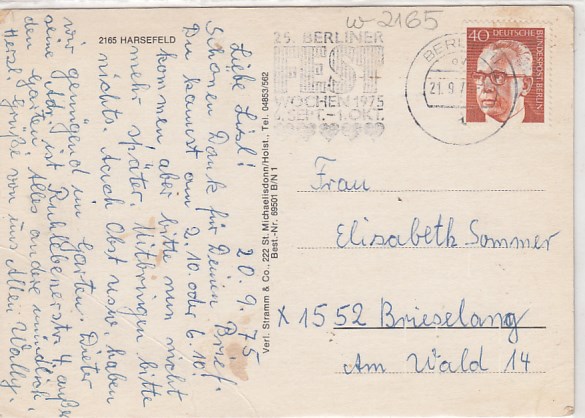 w-2165
2165 HARSEFELD
25. BERLINER
FEST
WOCHEN 1975
SEPT.-1.OKT.
BERLIN
21.9.7
40
DEUTSCHE
BUNDESPOST BERLIN
20.9.75
Liebe Lisl!
Schönen Dank für Deinen Brief.
Du kannst am 2.10. oder 6.10.
kommen aber bitte nun nicht
mehr später. Mitbringen bitte
nichts. Auch Obst usw. haben
wir genügend im Garten. Dieter
seine Adr. ist Ruhlebenerstr. 4, außer
den Garten. Alles andere mündlich.
Herzl. Grüße von uns Allen Wally.
Verl. Stramm & Co., 222 St. Michaelisdonn/Holst., Tel. 04853/562
Best.-Nr. 69501 B/N 1
Frau
Elisabeth Sommer
X 1552 Brieselang
Am Wald 14